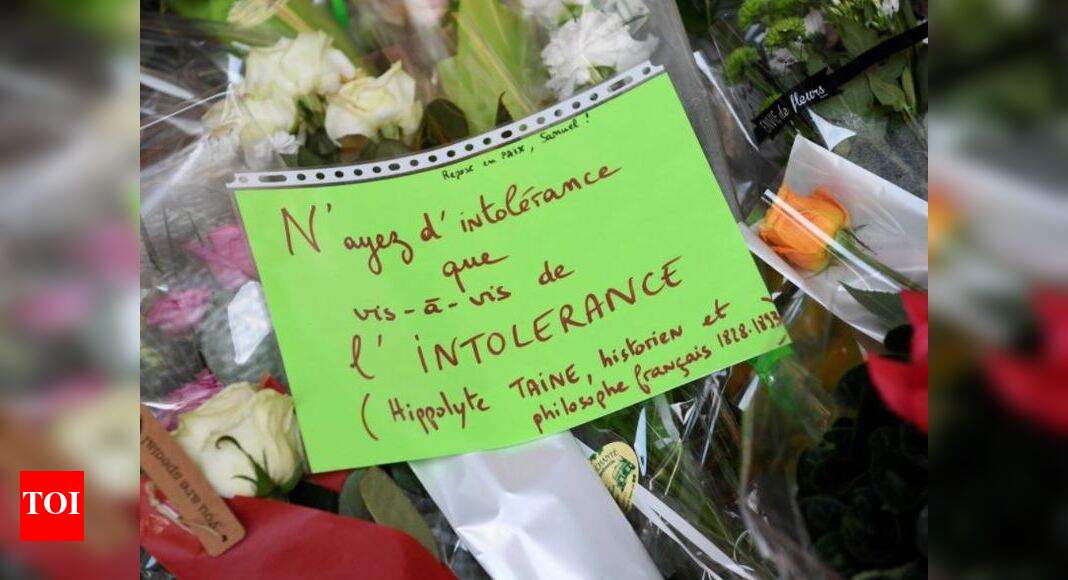 Repose en PAIX, Samuel !
N'ayez d'intolérance
que
vis-à-vis de
l'INTOLERANCE
(Hippolyte TAINE, historien et
philosophe français 1828-1893)
de fleurs
You are special
TOI